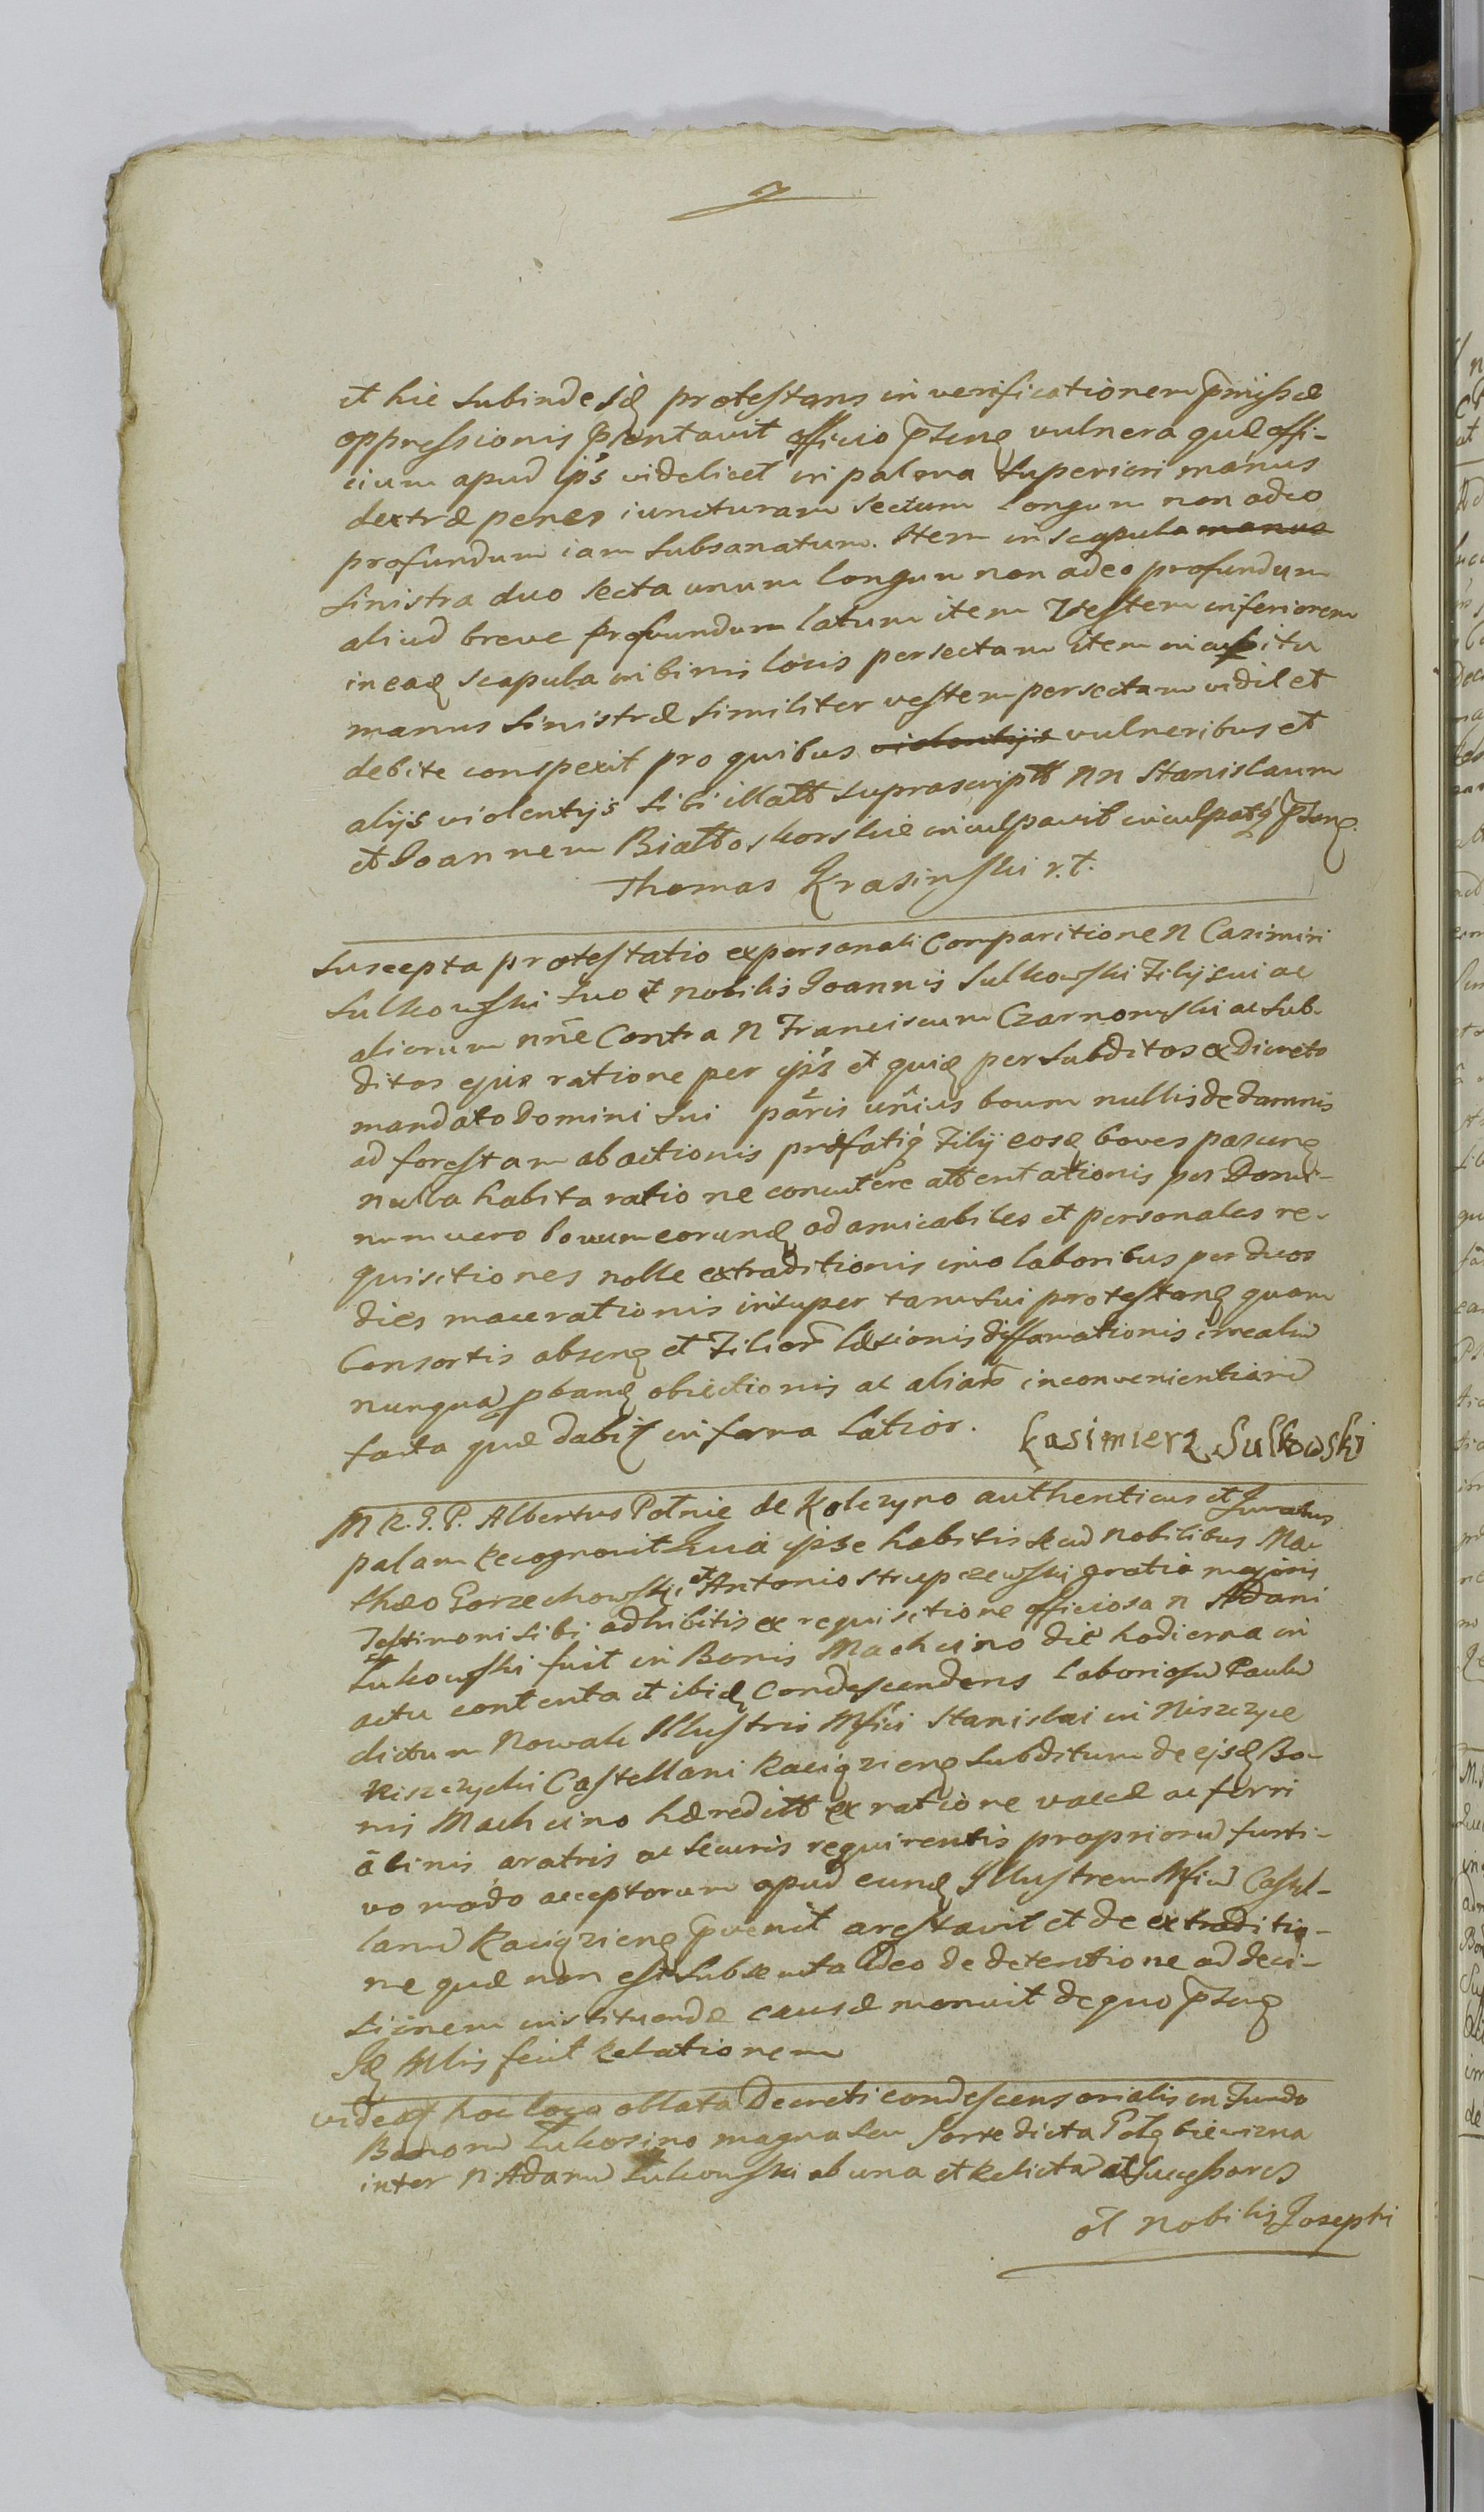 et hic subinde idq protestans in verificationem pmissæ
oppressionis pntavit officio pseng vulnera quæ offi-
cium apud ips videlicet in palma superiori manus
dextræ penes iuncturam sectum longum non adeo
profundum iam subsanatum. Item in scapula manus
sinistra duo secta unum longum non adeo profundum
aliud breve profundum latum item vestem inferiorem
in eadq scapula in binis locis persectam item in cubitu
manus sinistræ similiter vestem persectam vidil et
debite conspexit pro quibus violentijs vulneribus et
alijs violentijs sibi illatt suprascriptt NN Stanislaum
et Joannem Biattoskorskie inculpavit inculpatq pseng
Thomas Krasinski r.t.
Suscepta protestatio ex personali Comparitione N Casimiri
Sulkowski suo et nobilis Joannis Sulkowski Filij sui ac
aliorum nne Contra N Franciscum Czarnomski ac sub-
ditos ejus ratione per ips et quidq per subditos ex Dicreto
mandato Domini sui paris unius boum nullis de damnis
ad forestam abactionis præfatiq Filij eosq boves pascenq
nulla habita ratione concutere attentationis per Domi-
num vero bovum eorundq ad amicabiles et personales re-
quisitiones nolle extraditionis imo laboribus per duos
dies macerationis insuper tam sui protestanq quam
Consortis absenq et Filior læsionis diffamationis irrealiu
nunquam pbandq obiectionis ac aliar inconvenientiaru
facta quæ dabiq in forma latior. Kasimierz Sulkowski
M R. J. P. Albertus Potnie de Kolczyno authenticus et Juratus
palam recognovit Quia ipse habitis secu nobilibus Ma-
thæo Gorzechowski et Antonio Strupczewski gratia majoris
Testimoni sibi adhibitis ex requisitione officiosa N Adami
Lukowski fuit in Bonis Machcino die hodierna in
actu contenta et ibidq Condescendens laboriosu Paulu
dictum Nowak Illustris Mfici Stanislai in Niszczyce
Niszczycki Castellani Raciązienq subditum de ejsdq Bo-
nis Machcino hæreditt ex ratione vaccæ ac ferri
alinis aratris ac securis requirentis proprioru furti-
vo modo acceptorum apud eundq Illustrem Mficu Castel-
lanu Raciązienq pvenit arestavit et de extraditio-
ne quæ non est subsecuta ideo de detentione ad deci-
sionem instituendæ causæ monuit de quo pseng
Idq Mlis fecit Relationem
videatq hoc loco oblata Decreti condescensorialis in Fundo
Bonoru Lukosino magna seu Sorte dicta Gołębiewizna
inter N. Adamu Lukowski ab una et Relicta et Successores
ol Nobilis Josephi